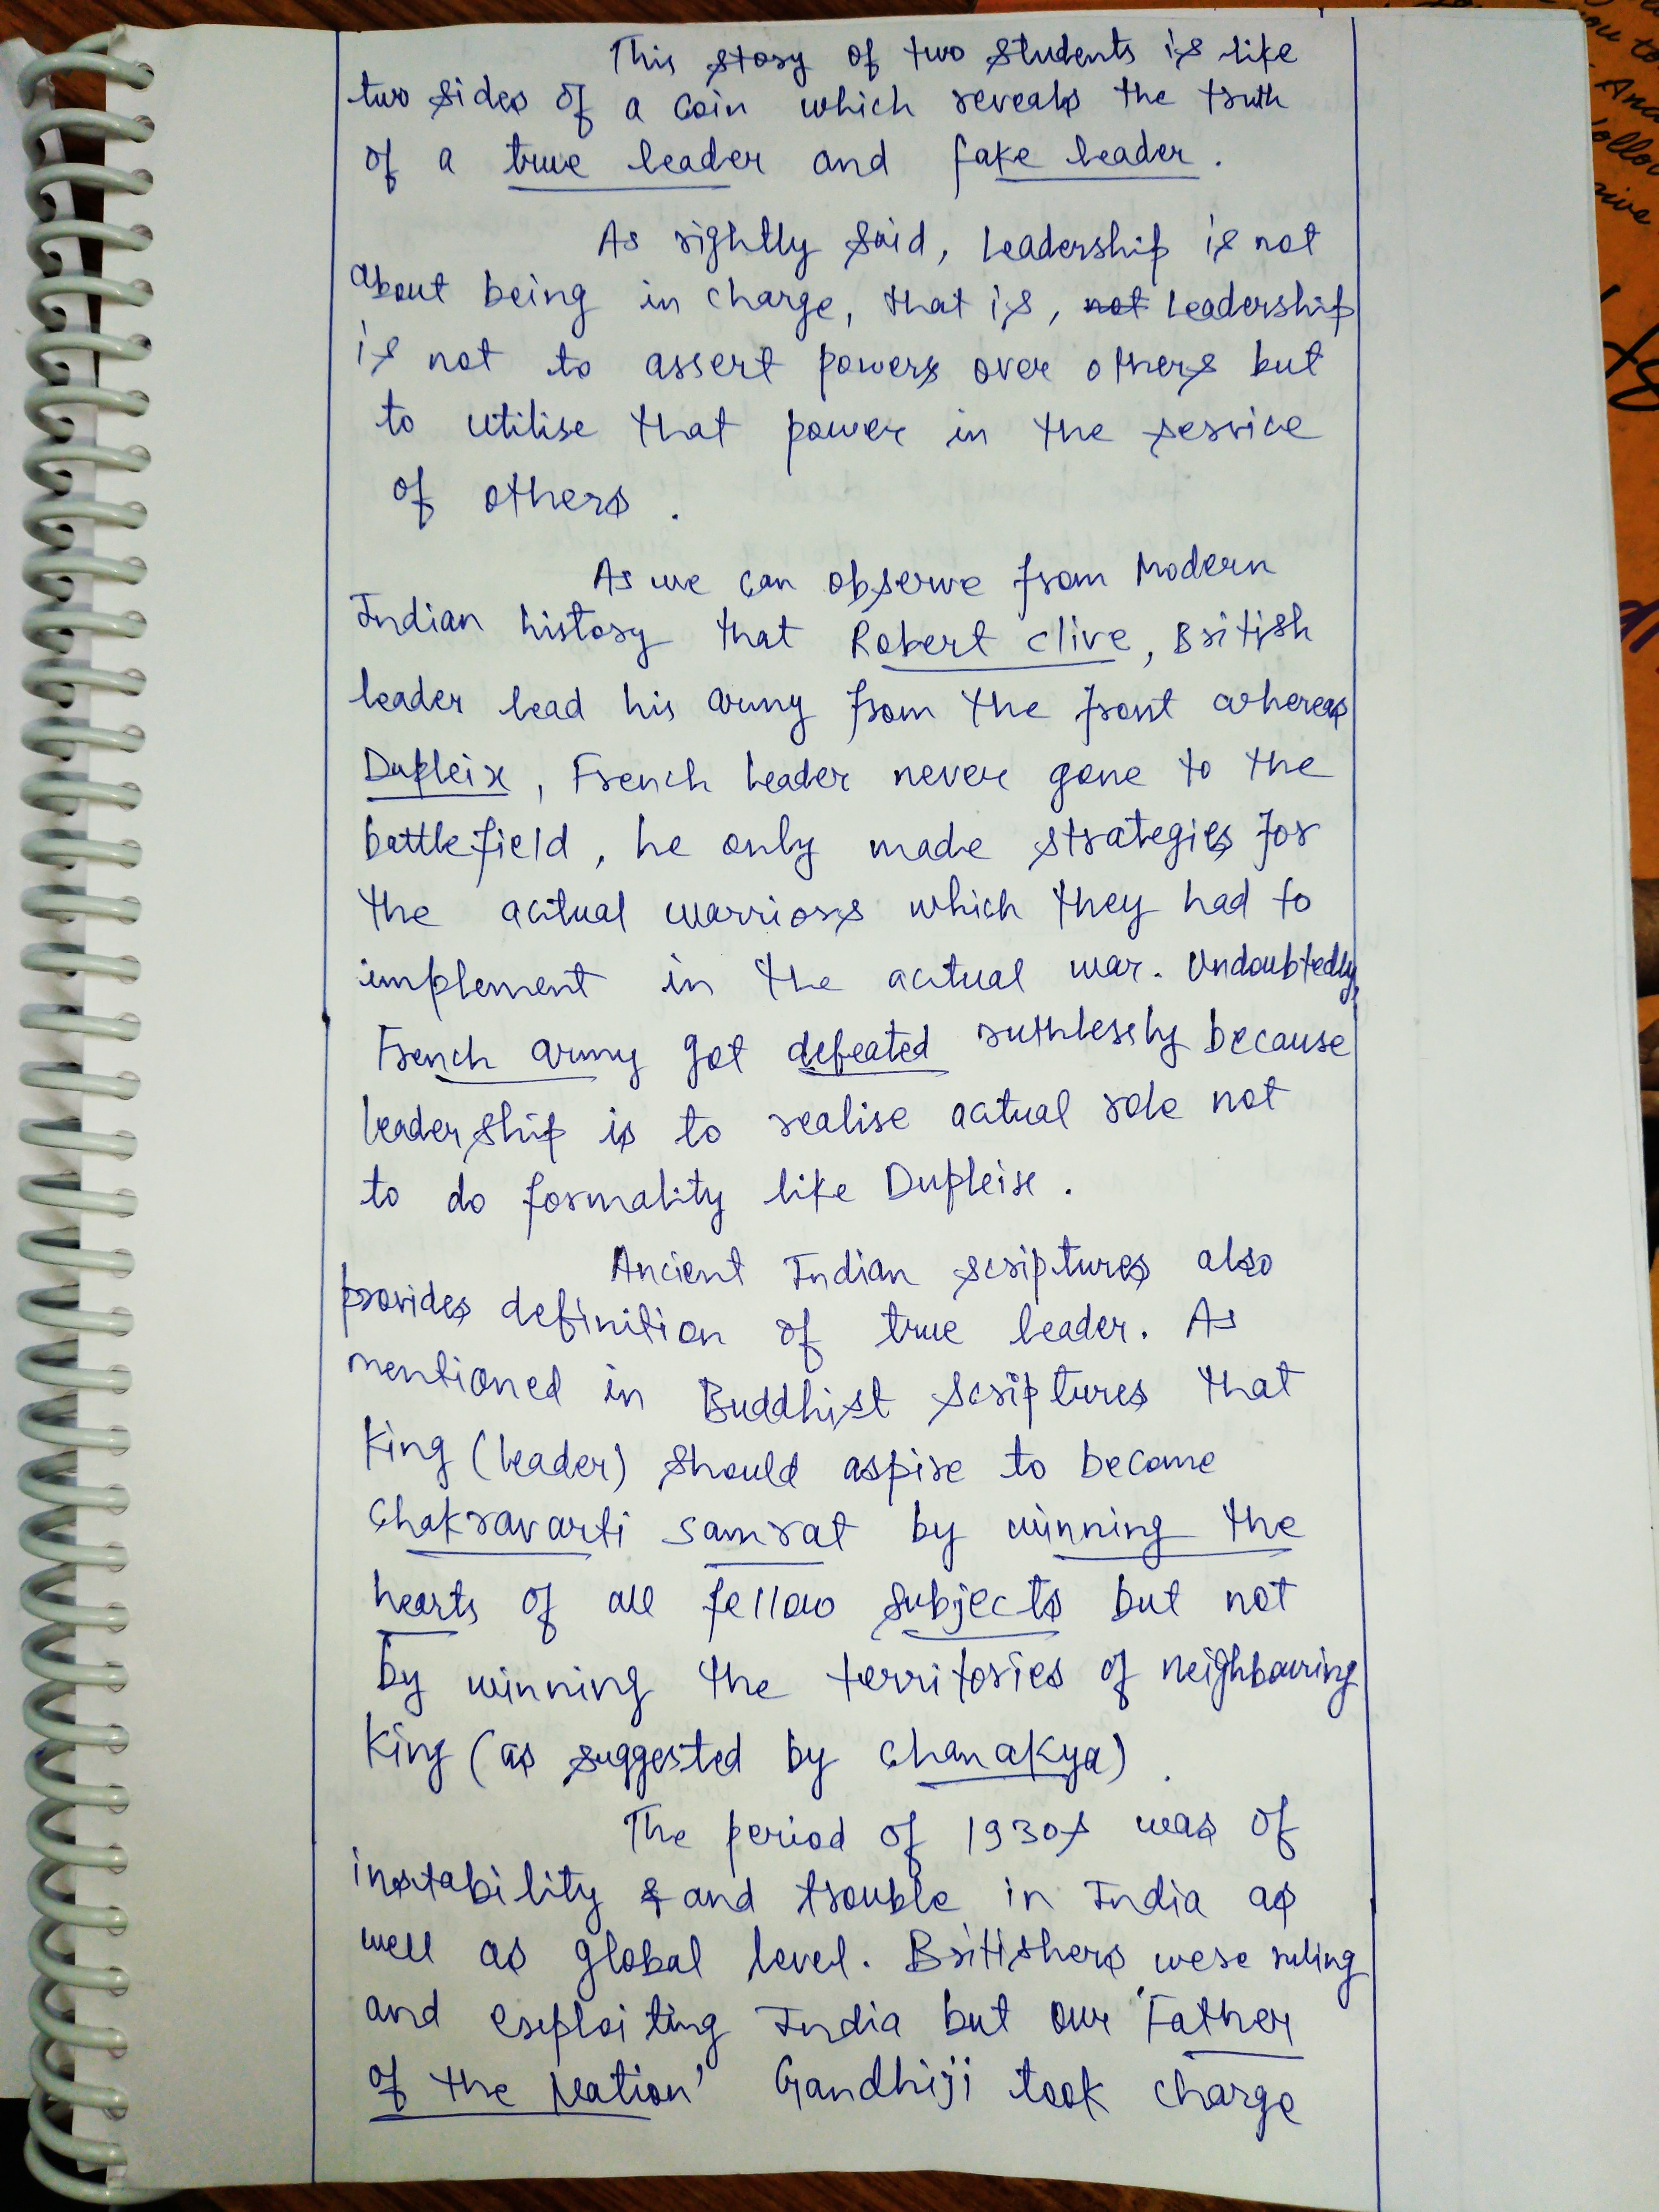 This story of two students is like
two sides of a coin which reveals the truth
of a true leader and fake leader.
As rightly said, Leadership is not
about being in charge, that is, not Leadership
is not to assert powers over others but
to utilise that power in the service
of others.
As we can observe from Modern
Indian history that Robert Clive, British
leader lead his army from the front whereas
Dupleix, French leader never gone to the
battlefield, he only made strategies for
the actual warriors which they had to
implement in the actual war. Undoubtedly,
French army got defeated ruthlessly because
leadership is to realise actual role not
to do formality like Dupleix.
Ancient Indian scriptures also
provides definition of true leader. As
mentioned in Buddhist scriptures that
King (leader) should aspire to become
Chakravarti Samrat by winning the
hearts of all fellow subjects but not
by winning the territories of neighbouring
King (as suggested by Chanakya).
The period of 1930s was of
instability & and trouble in India as
well as global level. Britishers were ruling
and exploiting India but our 'Father
of the Nation' Gandhiji took charge
you to
And